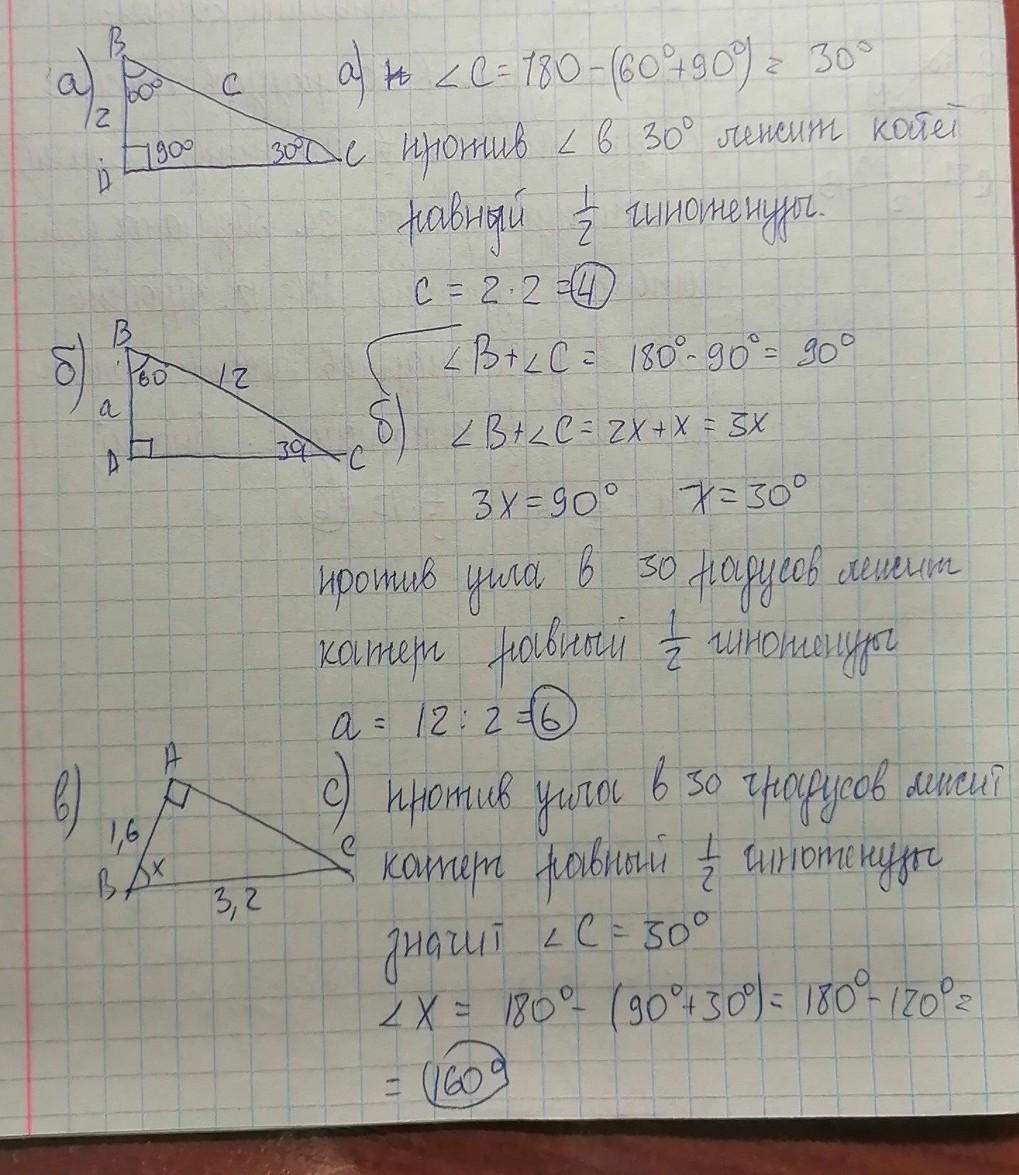 а) B
60° C
2
90° 30° C
A
а) ∠C = 180 - (60°+90°) = 30°
против ∠ в 30° лежит катет
равный 1/2 гипотенузы.
c = 2 · 2 = 4
б) B
60 12
a
A 30 C
∠B+∠C = 180° - 90° = 90°
б) ∠B+∠C = 2x+x = 3x
3x = 90° x = 30°
против угла в 30 радусов лежит
катет равный 1/2 гипотенузы
a = 12 : 2 = 6
в) A
1,6 C
B x
3,2
с) против угла в 30 градусов лежит
катет равный 1/2 гипотенузы
значит ∠C = 30°
∠X = 180° - (90°+30°) = 180° - 120° =
= 160°